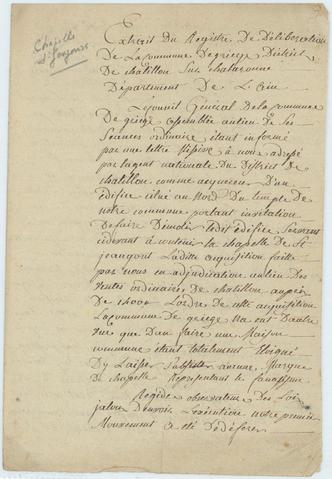 Chapelle
St Jeangoust
Extrait Du Registre de Deliberation
De La Commune De griege District
De chatillon Sur chalaronne
Département De L'ain
Le Conseil Général De la Commune
De griege assemblée au lieu de Ses
Seances ordinaire étant informé
par une lettre Missive à nous adressé
par Lagent nationale du District de
chatillon comme acquereur D'un
édifice situé au Nord Du temple de
notre commune portant invitation
De faire Démolir Ledit édifice Servant
cidevant à contenir la chapelle De St
jeangoust Laditte acquisition faitte
par nous en adjudication au lieu des
ventes ordinaires de chatillon au prix
de Lordre de cette acquisition
La Commune de griege Na eut Dautre
vue que Den faire une Maison
commune étant totalement Eloigné
Dy Laisser Subsister aucune Marque
De chapelle Représentant le fanatisme
Rigide observateur Des Loix
jaloux Den voir Lexécution notre premier
Mouvement a été